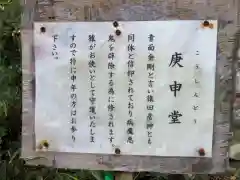 こうしんどう
庚申堂
青面金剛と言い猿田彦神とも
同体と信仰されており病魔悪
鬼を碎除する為に修されます。
猿がお使いとして守護いたしま
すので特に申年の方はお参り
下さい。